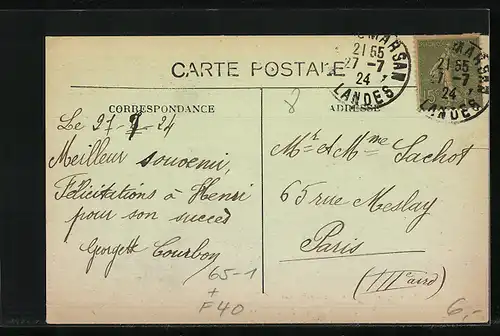 CARTE POSTALE
CORRESPONDANCE
Le 27-7-24
Meilleur souvenir,
Félicitations à Henri
pour son succès
Georgett Courbon
65-1
+
F40
8
ADRESSE
Mr et Mme Sachot
65 rue Meslay
Paris
(IIIe arrd)
6,-
MARSAN
21 55
27-7
24
LANDES
MARSAN
21 55
7-7
24
LANDES
15